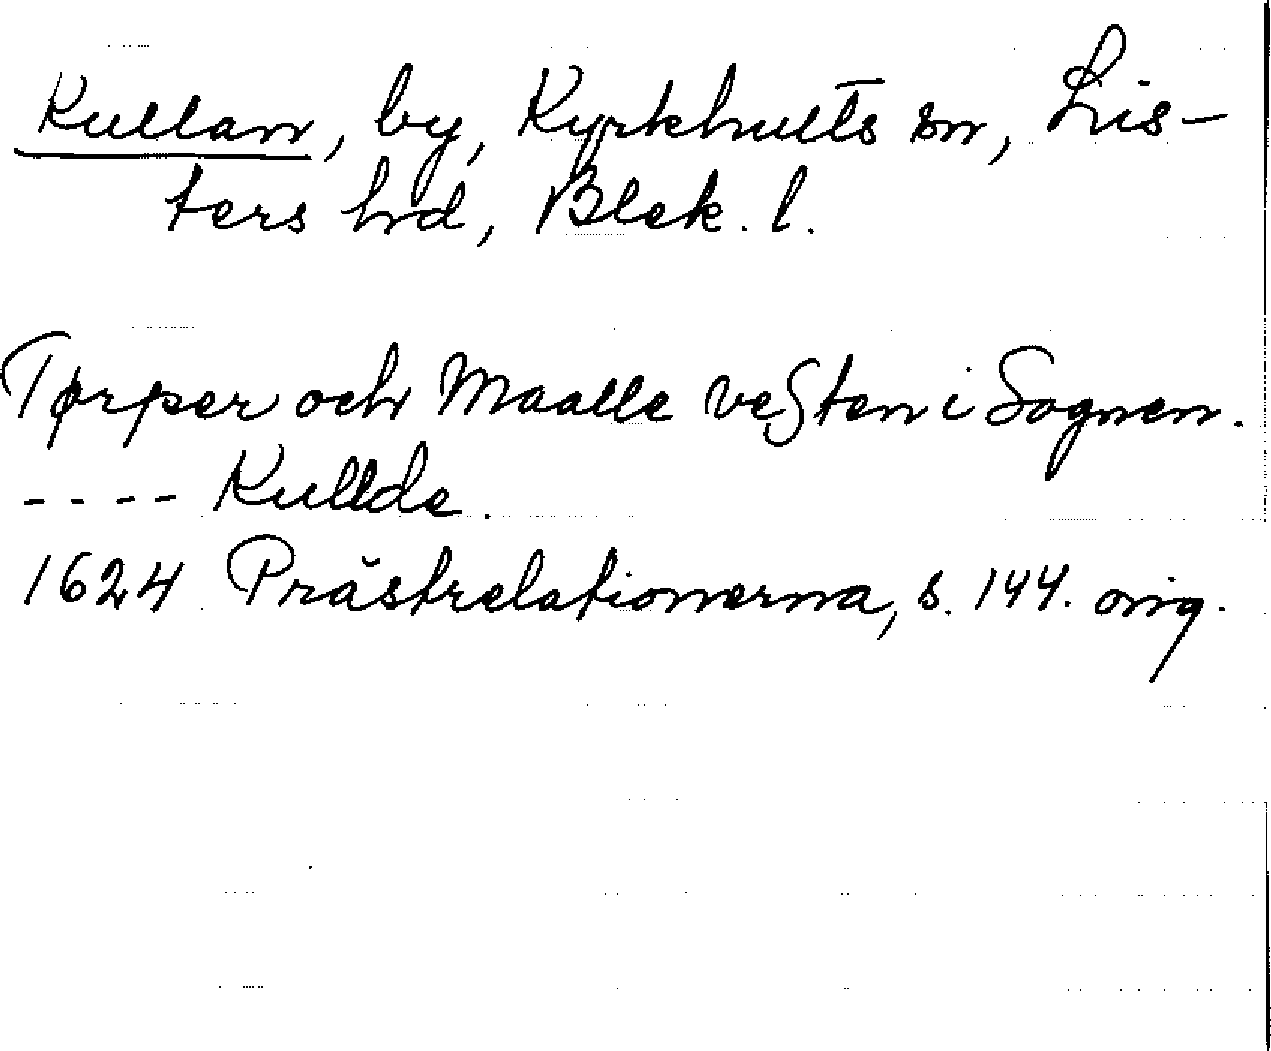 Kullan, by, Kyrkhults sn, Lis-
ters hd, Blek. l.
Tørper och Maalle veſten i Sognen.
---- Kullde.
1624 Prästrelationerna, s. 144. orig.